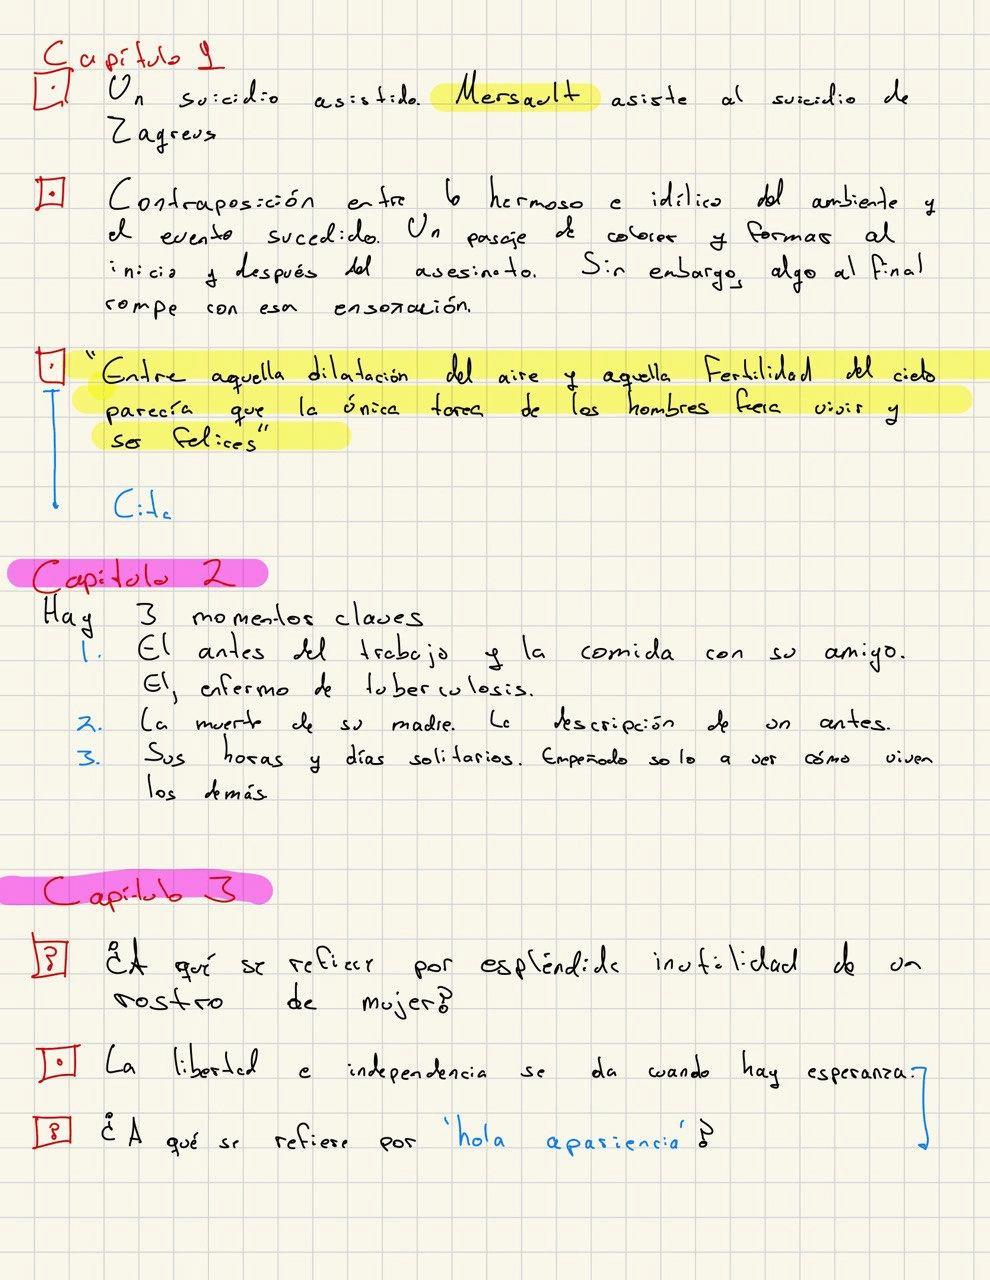 Capítulo 1
Un suicidio asistido. Mersault asiste al suicidio de
Zagreus
Contraposición entre lo hermoso e idílico del ambiente y
el evento sucedido. Un pasaje de colores y formas al
inicio y después del asesinato. Sin embargo, algo al final
rompe con esa ensoñación.
"Entre aquella dilatación del aire y aquella fertilidad del cielo
parecía que la única tarea de los hombres fuera vivir y
ser felices"
Cita
Capítulo 2
Hay 3 momentos claves
1. El antes del trabajo y la comida con su amigo.
El, enfermo de tuberculosis.
2. La muerte de su madre. La descripción de un antes.
3. Sus horas y días solitarios. Empeñado solo a ver cómo viven
los demás
Capítulo 3
? ¿A qué se refiere por espléndida inutilidad de un
rostro de mujer?
La libertad e independencia se da cuando hay esperanza.
? ¿A qué se refiere por 'hola apariencia'?